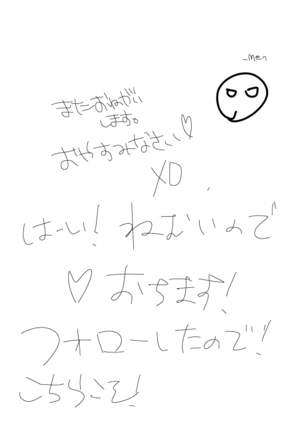 ~me~
またおねがい
します。
おやすみなさい♡
XD
はーい！ねむいので
♡おちます！
フォローしたので！
こちらこそ！